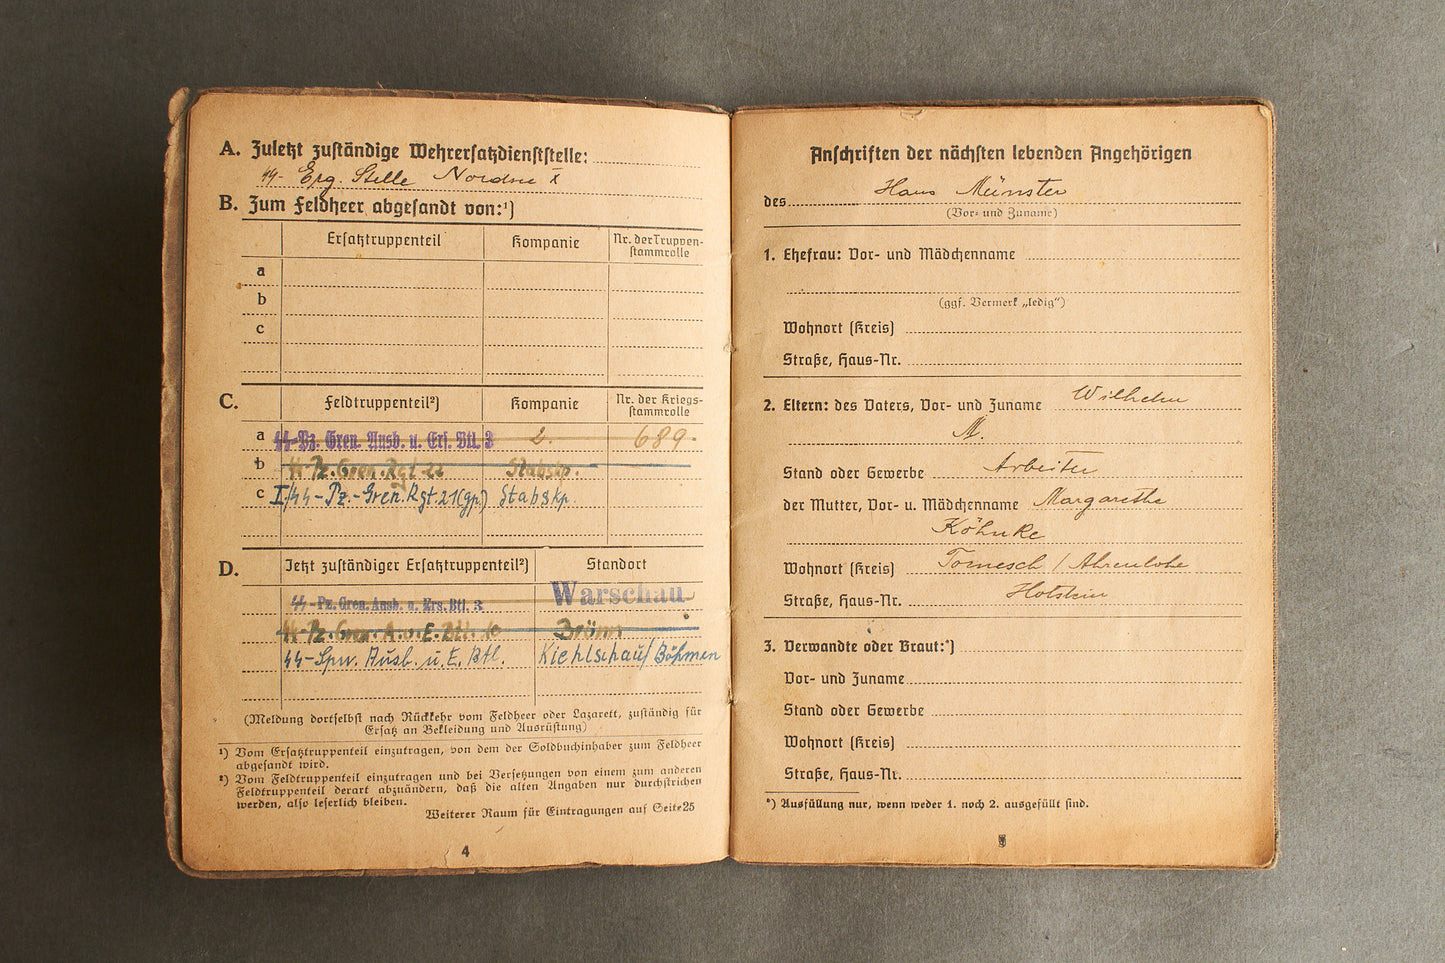 A. Zuletzt zuständige Wehrersatzdienststelle:
SS- Erg. Stelle Nordsee X
B. Zum Feldheer abgesandt von:¹)
Ersatztruppenteil Kompanie Nr. der Truppen-
stammrolle
a
b
c
C. Feldtruppenteil²) Kompanie Nr. der Kriegs-
stammrolle
a SS-Pz. Gren. Ausb. u. Ers. Btl. 3 2. 689.
b SS-Pz. Gren. Rgt 22 Stabskp.
c I/SS-Pz.-Gren. Rgt. 21 (gp.) Stabskp.
D. Jetzt zuständiger Ersatztruppenteil²) Standort
SS-Pz. Gren. Ausb. u. Ers. Btl. 3 Warschau
SS-Pz. Gren. A. u. E. Btl. 10 Brünn
SS-Spw. Ausb. u. E. Btl. Kiehlschau/Böhmen
(Meldung dortselbst nach Rückkehr vom Feldheer oder Lazarett, zuständig für
Ersatz an Bekleidung und Ausrüstung)
¹) Vom Ersatztruppenteil einzutragen, von dem der Soldbuchinhaber zum Feldheer
abgesandt wird.
²) Vom Feldtruppenteil einzutragen und bei Versetzungen von einem zum anderen
Feldtruppenteil derart abzuändern, daß die alten Angaben nur durchstrichen
werden, also leserlich bleiben.
Weiterer Raum für Eintragungen auf Seite 25
4
Anschriften der nächsten lebenden Angehörigen
des Hans Münster
(Vor- und Zuname)
1. Ehefrau: Vor- und Mädchenname
(ggf. Vermerk „ledig“)
Wohnort (Kreis)
Straße, Haus-Nr.
2. Eltern: des Vaters, Vor- und Zuname Wilhelm
M.
Stand oder Gewerbe Arbeiter
der Mutter, Vor- u. Mädchenname Margarethe
Köhnke
Wohnort (Kreis) Tornesch / Ahrenlohe
Straße, Haus-Nr. Holstein
3. Verwandte oder Braut:*)
Vor- und Zuname
Stand oder Gewerbe
Wohnort (Kreis)
Straße, Haus-Nr.
*) Ausfüllung nur, wenn weder 1. noch 2. ausgefüllt sind.
5